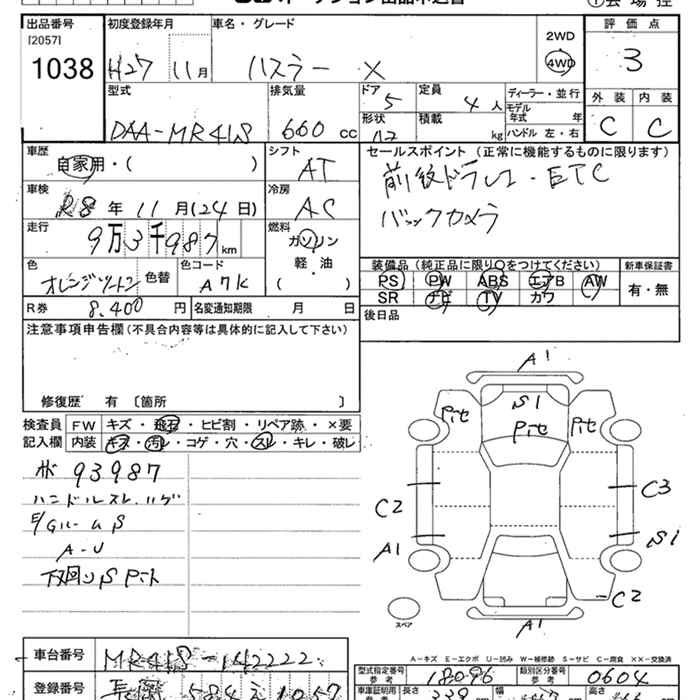 出品番号 初度登録年月 車名・グレード 評価点
[2057]
1038 H27 11月 ハスラー X 2WD 4WD 3
型式 排気量 ドア 定員 ディーラー・並行 外装 内装
DAA-MR41S 660 cc 5 4人 モデル年式 年 C C
形状 積載 kg ハンドル 左・右
車歴 シフト セールスポイント (正常に機能するものに限ります)
自家用・( ) AT 前後ドラレコ・ETC
車検 冷房 バックカメラ
R8年 11月(24日) AC
走行 燃料
9万3千987km ガソリン
軽・油
( )
装備品 (純正品に限り○をつけてください) 新車保証書
色 色替 色コード PS PW ABS エアB AW 有・無
オレンジツートン A7K SR ナビ TV カワ
R券 8,400円 名変通知期限 月 日 後日品
注意事項申告欄 (不具合内容等は具体的に記入して下さい)
修復歴 有 〔箇所 〕
検査員記入欄 FW キズ・飛石・ヒビ割・リペア跡・×要
内装 キズ・汚レ・コゲ・穴・スレ・キレ・破レ
93987
ハンドルスレ
A-U
下回りS
A1
S1
Pit Pit Pit
C2 C3
A1 S1
C2
A1
スペア
A-キズ E-エクボ U-凹み W-補修跡 S-サビ C-腐食 ××-交換済
車台番号 MR41S-142222
型式指定番号 18096 類別区分番号 0604
登録番号
車車証明用参考 長さ 339 幅 高さ